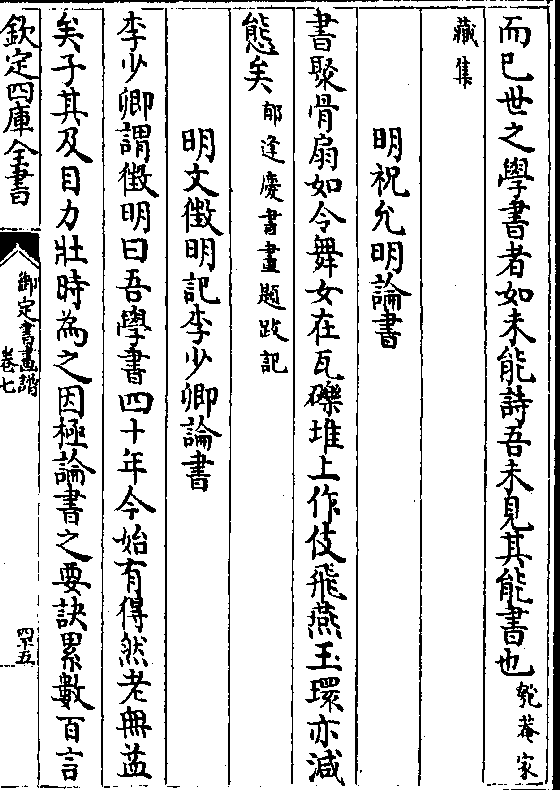 而已世之學書者如未能詩吾未見其能書也匏菴家
藏集
明祝允明論書
書聚骨扇如令舞女在瓦礫堆上作伎飛燕玉環亦減
態矣郁逢慶書畫題跋記
明文徵明記李少卿論書
李少卿謂徵明曰吾學書四十年今始有得然老無益
矣子其及目力壯時為之因極論書之要訣累數百言
欽定四庫全書
御定書畫譜
卷七
四十五